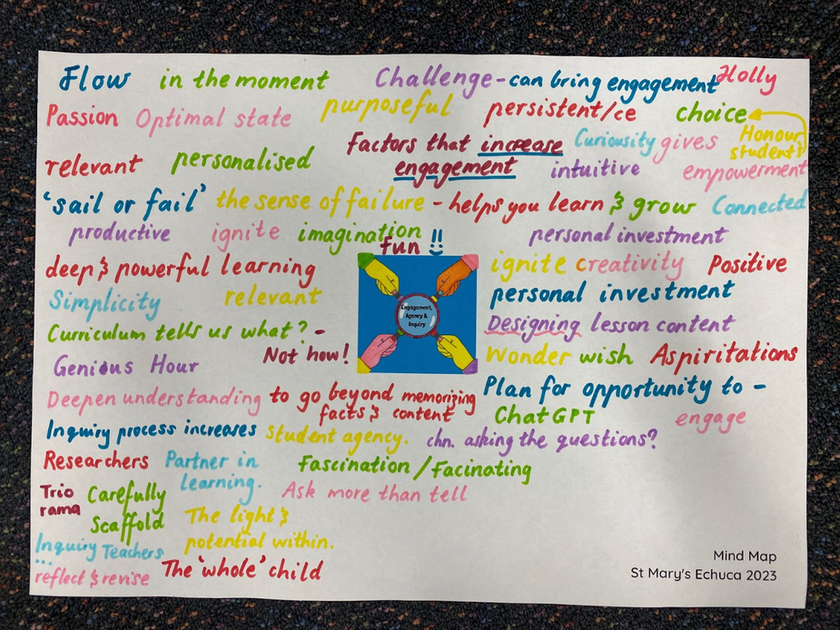 Flow in the moment Challenge - can bring engagement Holly
Passion Optimal state purposeful persistent/ce choice
relevant personalised Factors that increase engagement Curiosity gives empowerment
Honour student's
intuitive
'sail or fail' the sense of failure - helps you learn & grow Connected
productive ignite imagination personal investment
fun !!
deep & powerful learning ignite creativity Positive
Simplicity relevant personal investment
Engagement,
Agency &
Inquiry
Curriculum tells us what? - Designing lesson content
Not how!
Genious Hour Wonder wish Aspiritations
Deepen understanding to go beyond memorizing
facts & content
Plan for opportunity to -
ChatGPT engage
Inquiry process increases Student agency. chn. asking the questions?
Researchers Partner in
learning.
Fascination / Facinating
Trio
rama
Carefully
Scaffold
Ask more than tell
The light &
potential within.
Inquiry Teachers
...
reflect & revise
The 'whole' child
Mind Map
St Mary's Echuca 2023